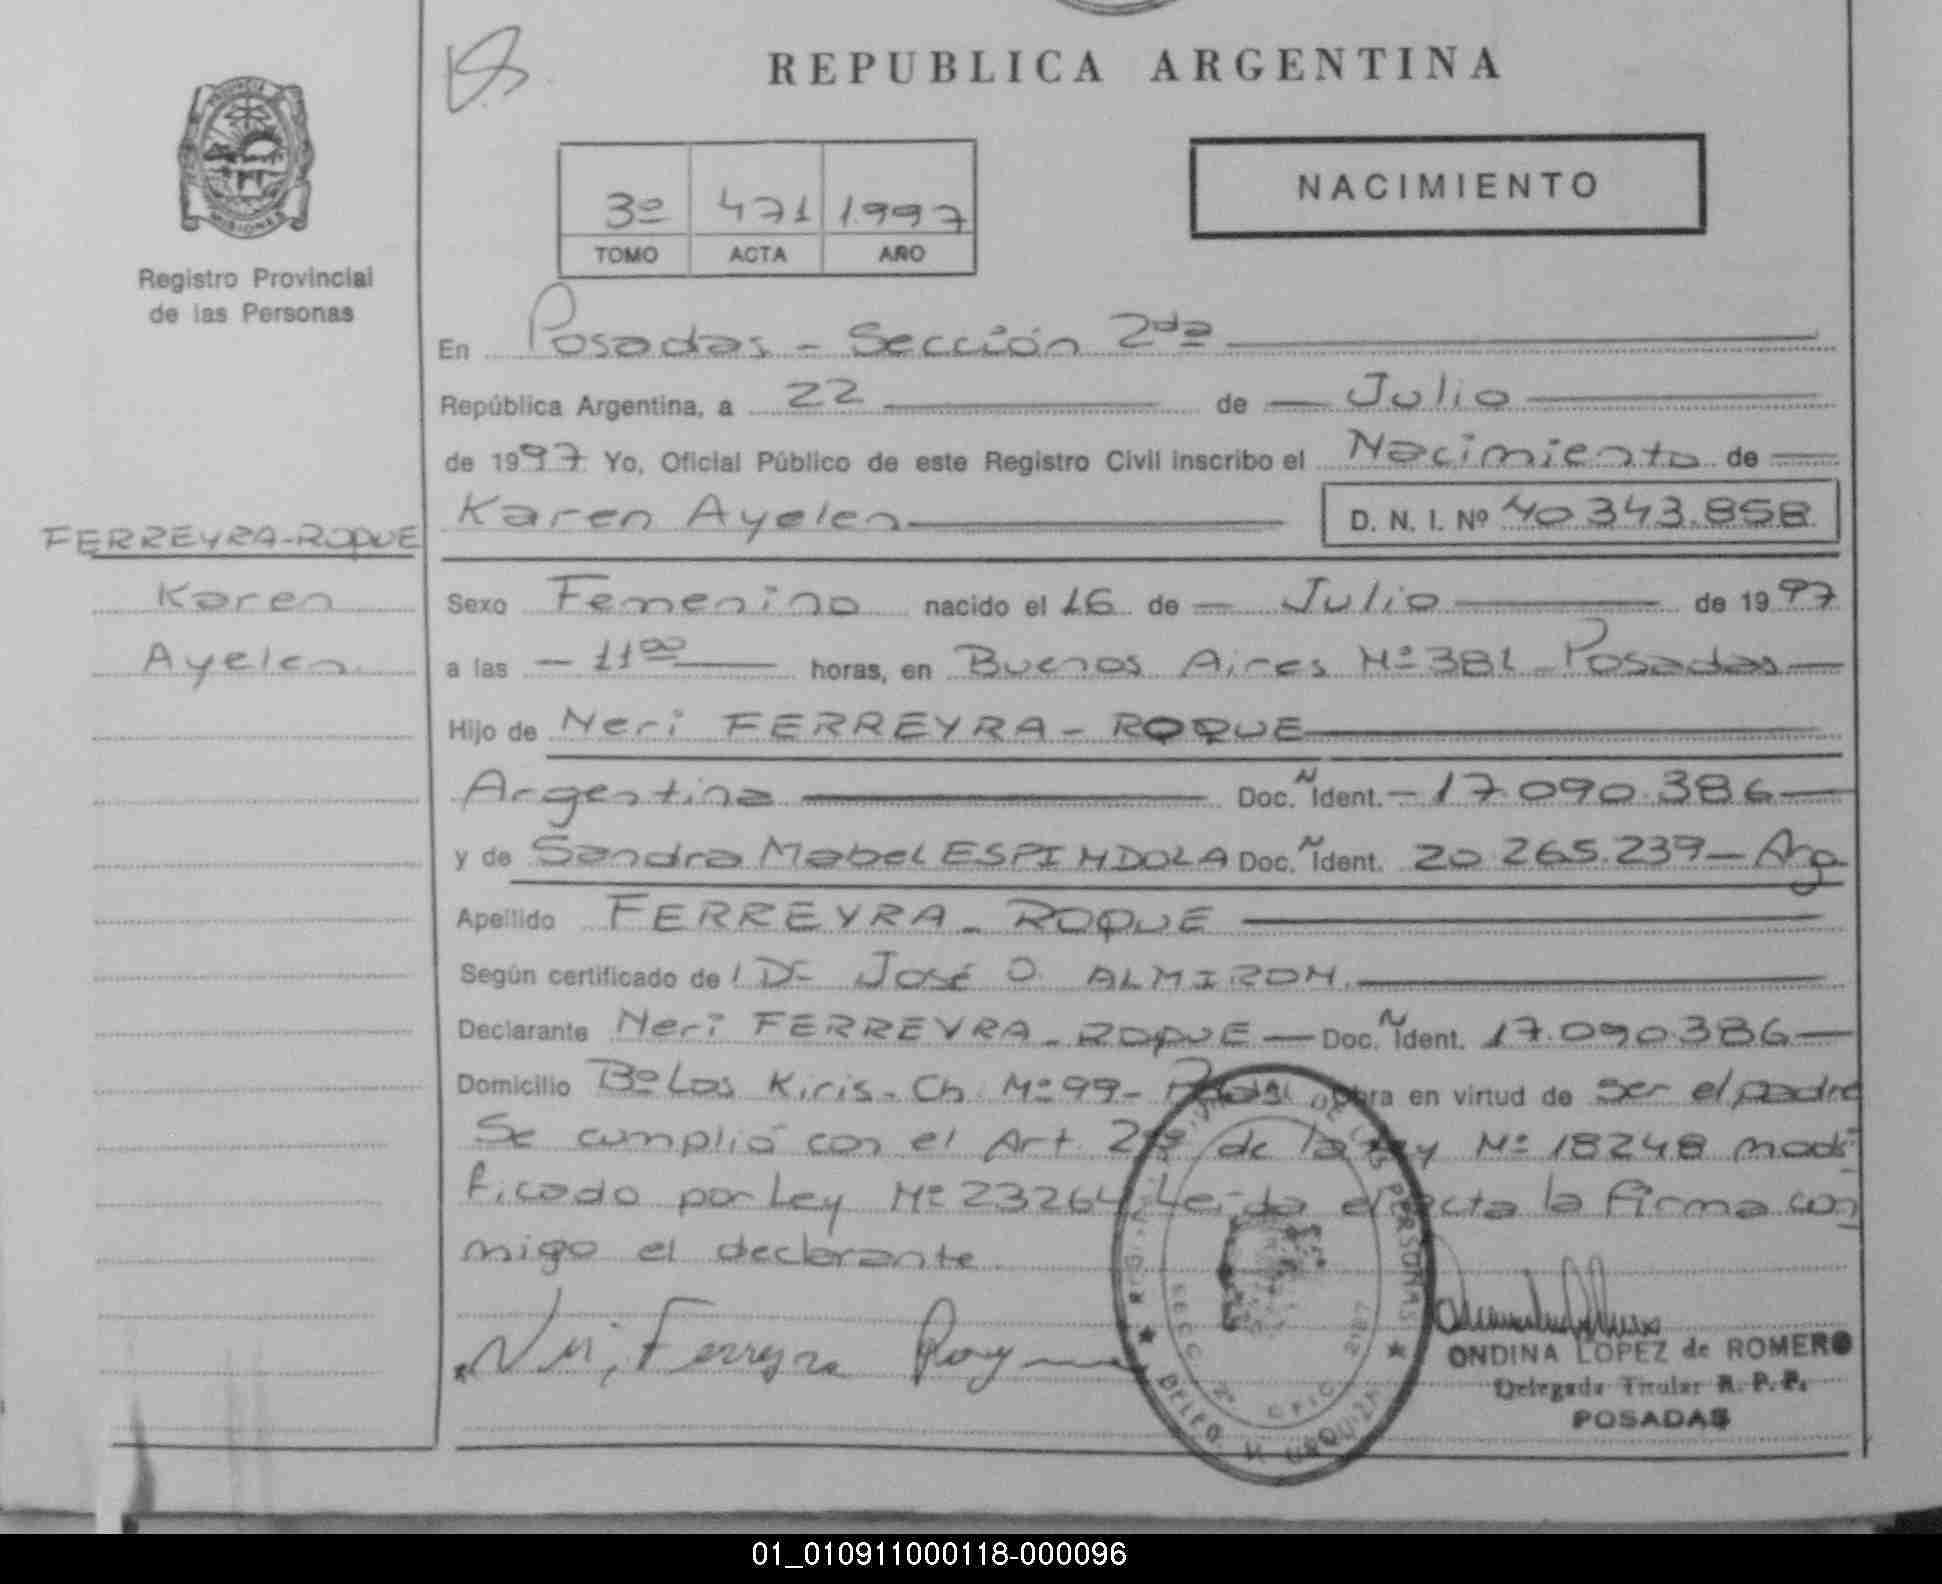 REPUBLICA ARGENTINA
PROVINCIA
MISIONES
Registro Provincial
de las Personas
NACIMIENTO
3º 471 1.997
TOMO ACTA AÑO
En Posadas - Sección 2da
República Argentina, a 22 de Julio
de 1997 Yo, Oficial Público de este Registro Civil inscribo el Nacimiento de
Karen Ayelen D. N. I. Nº 40.343.858
FERREYRA-ROQUE
Karen
Ayelen
Sexo Femenino nacido el 16 de Julio de 1997
a las - 1100 horas, en Buenos Aires Nº 381 - Posadas
Hijo de Neri FERREYRA - ROQUE
Argentina Doc. Ident. - 17.090.386
y de Sandra Mabel ESPINDOLA Doc. Ident. 20.265.239 - Arg
Apellido FERREYRA - ROQUE
Según certificado de Dr José O. ALMIRON
Declarante Neri FERREYRA - ROQUE - Doc. Ident. 17.090.386
Domicilio Bº Los Kiris - Ch. Nº 99 - obra en virtud de ser el padre
Se cumplió con el Art. de la Ley Nº 18248 modi
ficado por Ley Nº 23264 Leida el acta la firma con
migo el declarante
Neri Ferreyra Roq
DE LAS PERSONAS
SECC. 2ª OFIC. 2187
DPTO. URQUIZA
ONDINA LOPEZ de ROMERO
Delegada Titular R. P. P.
POSADAS
01_010911000118-000096